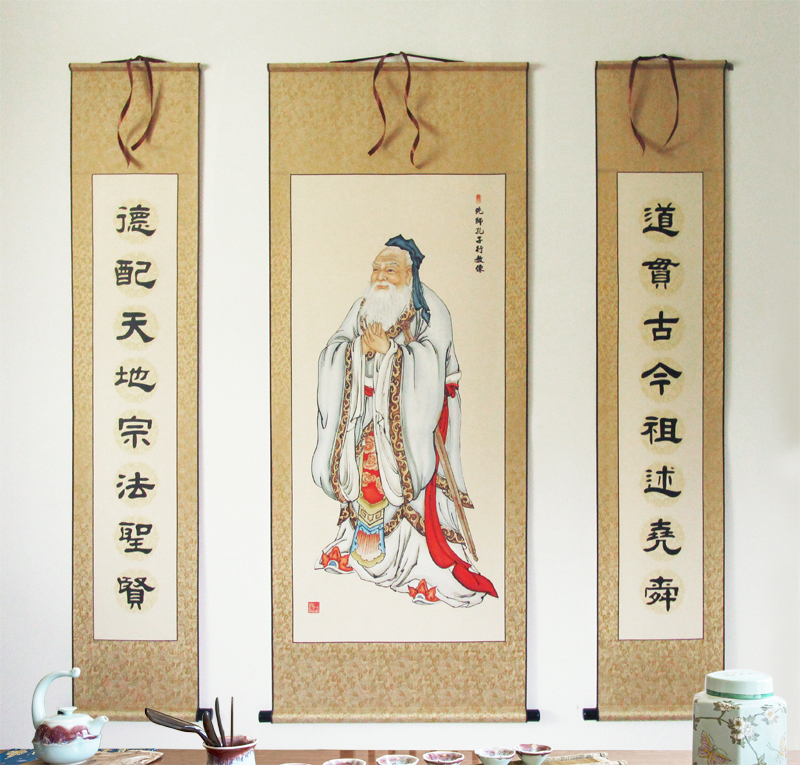 道貫古今祖述堯舜
先師孔子行教像
德配天地宗法聖賢